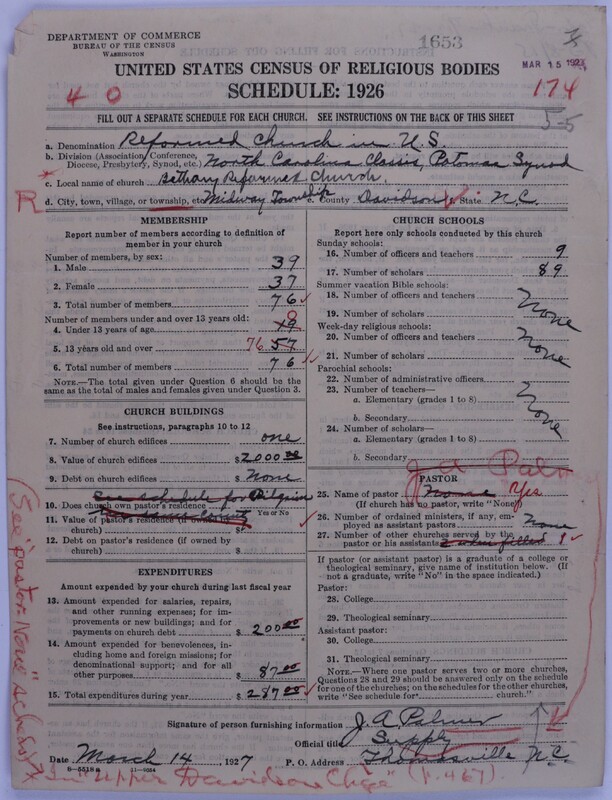 DEPARTMENT OF COMMERCE
BUREAU OF THE CENSUS
WASHINGTON
1653
MAR 15 1927
UNITED STATES CENSUS OF RELIGIOUS BODIES
SCHEDULE: 1926
4 0
174
FILL OUT A SEPARATE SCHEDULE FOR EACH CHURCH. SEE INSTRUCTIONS ON THE BACK OF THIS SHEET
55
a. Denomination Reformed Church in U.S.
b. Division (Association, Conference, Diocese, Presbytery, Synod, etc.) North Carolina Classis, Potomac Synod
c. Local name of church Bethany Reformed Church.
R
d. City, town, village, or township, etc. Midway Township e. County Davidson f. State N.C.
MEMBERSHIP
Report number of members according to definition of
member in your church
Number of members, by sex:
1. Male 39
2. Female 37
3. Total number of members 76
Number of members under and over 13 years old:
4. Under 13 years of age 19 0
5. 13 years old and over 76 57
6. Total number of members 76
NOTE.—The total given under Question 6 should be the
same as the total of males and females given under Question 3.
CHURCH BUILDINGS
See instructions, paragraphs 10 to 12
7. Number of church edifices one
8. Value of church edifices $2000.00
9. Debt on church edifices $ None
See schedule for Pilgrim
10. Does church own pastor's residence
Yes or No
11. Value of pastor's residence (if owned by
church) $
12. Debt on pastor's residence (if owned by
church) $
EXPENDITURES
Amount expended by your church during last fiscal year
13. Amount expended for salaries, repairs,
and other running expenses; for im-
provements or new buildings; and for
payments on church debt $ 200.00
14. Amount expended for benevolences,
including home and foreign missions; for
denominational support; and for all
other purposes $ 87.00
15. Total expenditures during year $ 287.00
CHURCH SCHOOLS
Report here only schools conducted by this church
Sunday schools:
16. Number of officers and teachers 9
17. Number of scholars 89
Summer vacation Bible schools:
18. Number of officers and teachers
19. Number of scholars
None
Week-day religious schools:
20. Number of officers and teachers
21. Number of scholars
None
Parochial schools:
22. Number of administrative officers
23. Number of teachers—
a. Elementary (grades 1 to 8)
b. Secondary
None
24. Number of scholars—
a. Elementary (grades 1 to 8)
b. Secondary
PASTOR
J. A. Palm
25. Name of pastor None Yes
(If church has no pastor, write "None)
26. Number of ordained ministers, if any, em-
ployed as assistant pastors None
27. Number of other churches served by the
pastor or his assistants 1
If pastor (or assistant pastor) is a graduate of a college or
theological seminary, give name of institution below. (If
not a graduate, write "No" in the space indicated.)
Pastor:
28. College
29. Theological seminary
Assistant pastor:
30. College
31. Theological seminary
NOTE.—Where one pastor serves two or more churches,
Questions 28 and 29 should be answered only on the schedule
for one of the churches; on the schedules for the other churches,
write "See schedule for church."
Signature of person furnishing information J. A. Palmer
Official title Supply
Date March 14, 1927 P. O. Address Thomasville N.C.
8-5518a 11-9034
(See "pastor: None" sched.
in "Upper Davidson Chge" (p. 467).